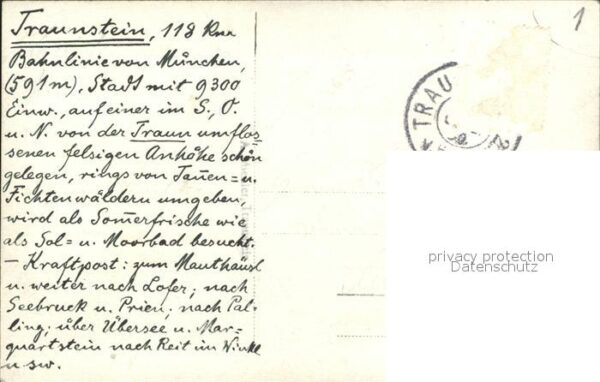 Traunstein, 118 Km
Bahnlinie von München,
(591m), Stadt mit 9300
Einw., auf einer im S., O.
u. N. von der Traun umflos-
senen felsigen Anhöhe schön
gelegen, rings von Tan̄en= u.
Fichtenwäldern umgeben,
wird als Som̄erfrische wie
als Sol= u. Moorbad besucht.
— Kraftpost: zum Mauthäusl
u. weiter nach Lofer; nach
Seebruck u. Prien; nach Pal-
ling; über Übersee u. Mar-
quartstein nach Reit im Winkl
usw.
1
TRAU
privacy protection
Datenschutz